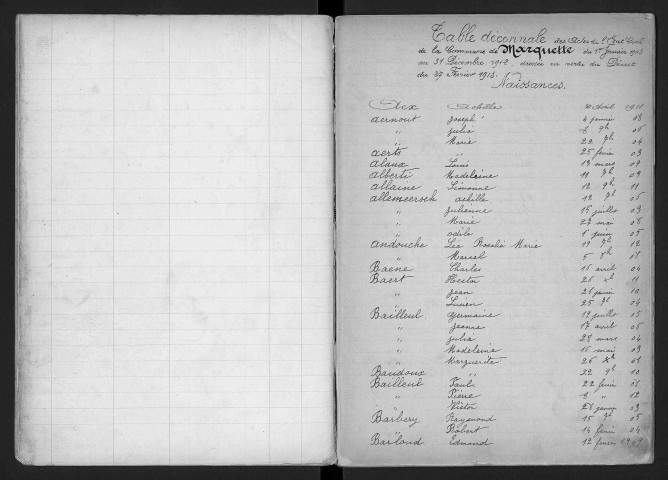 Table décennale des Actes de l'Etat Civil
de la Commune de Marquette du 1er Janvier 1903
au 31 Décembre 1912 dressée en vertu du Décret
du Février 1913.
Naissances.
Aex Achille Avril
aernout Joseph 4 janvier 08
" Julia 06
" Marie 04
aerts " 25 03
alaux Louis 13 mars
alberti Madeleine 11 09
allaine Simonne 12 9b 11
allemeersch achille 12 7b 05
" Julienne 15 juillet 09
" Marie 27 mai 08
" odile 1 juin 05
andouche Léa Rosalie Marie 12
" Marcel 5
Baene Charles 15 avril 04
Baert Hector 26 11
" Jean 26 10
" Lucien 25 04
Bailleul Germaine 12 juillet 05
" Jeanne 17 avril 06
" Julia 28 mars 04
" Madeleine 15 mai 09
" Marguerite 26
Baudoux " 22 9b 10
Bailleul Paul 22
" Pierre 6 " 12
" Victor 26 janvier 09
Barbery Raymond 15 05
" Robert 14 04
Barloud Edmond 12